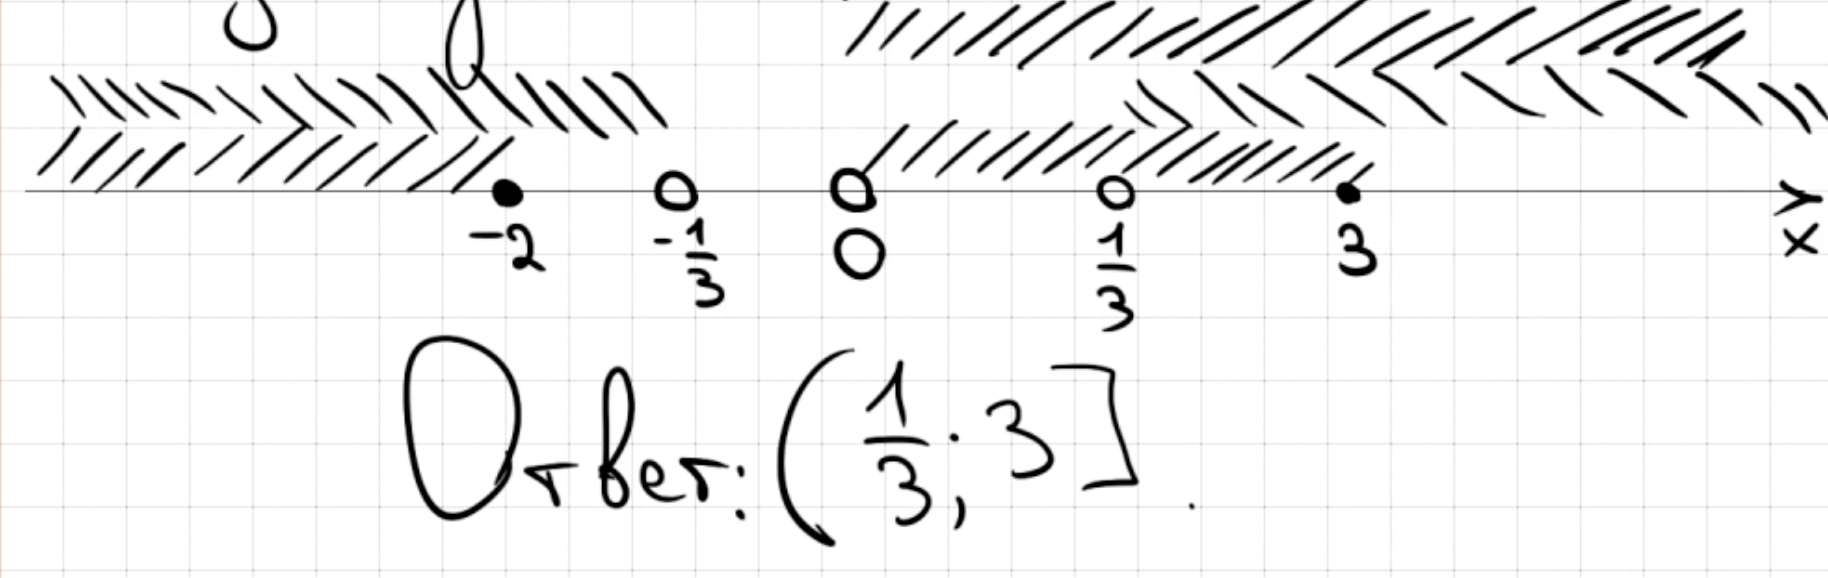 -2 -1/3 0 1/3 3 x
Ответ: (1/3; 3].